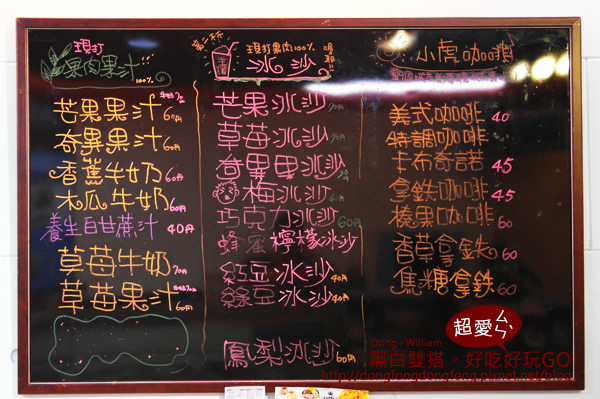 現打
果肉果汁
100%
芒果果汁 60円
奇異果汁 60円
香蕉牛奶 60円
木瓜牛奶 60円
養生白甘蔗汁 40円
草莓牛奶 70円
草莓果汁 60円
第二杯
現打果肉100%
冰沙
喔耶
芒果冰沙
草莓冰沙
奇異果冰沙
梅冰沙
巧克力冰沙 60円
蜂蜜檸檬冰沙
紅豆冰沙 40円
綠豆冰沙 40円
鳳梨冰沙 60円
小虎咖啡
美式咖啡 40
特調咖啡
卡布奇諾 45
拿鐵咖啡 45
榛果咖啡 60
香草拿鐵 60
焦糖拿鐵 60
超愛ㄣ
Dong+William
黑白雙搭。好吃好玩GO
http://dongfongdongfong.pixnet.net/blog